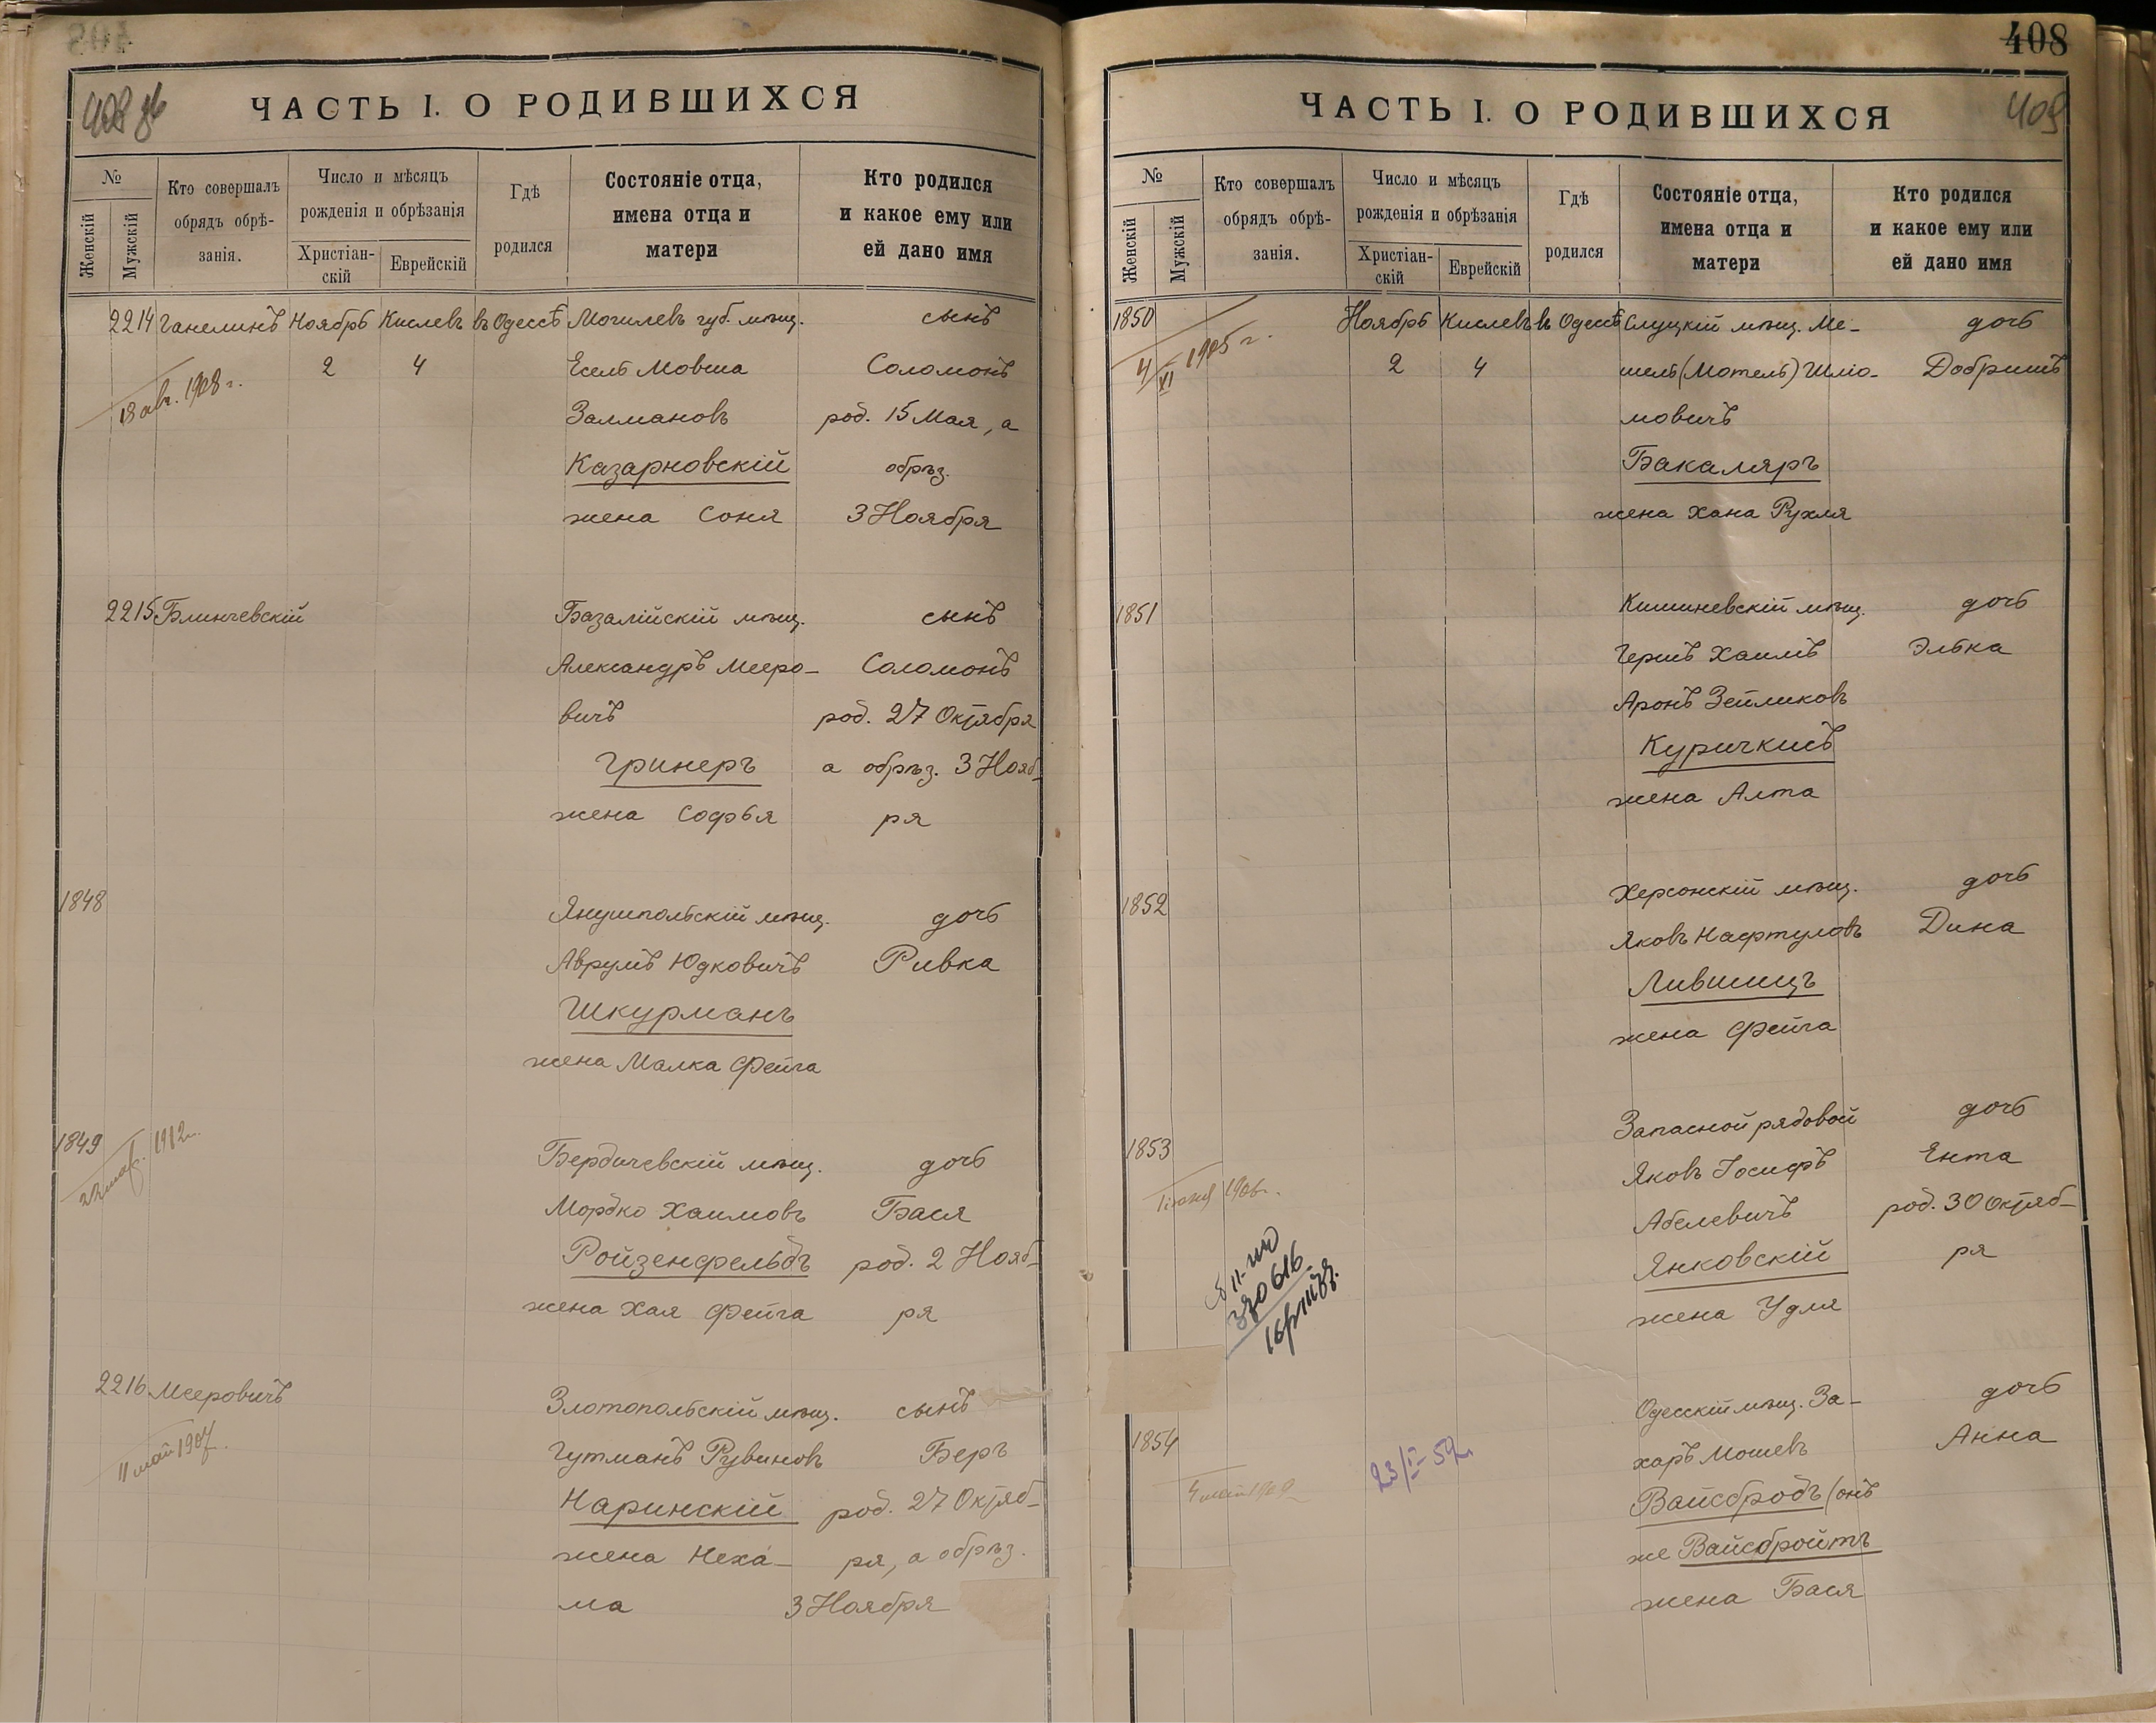 408
ЧАСТЬ I. О РОДИВШИХСЯ
№
Женскій
Мужскій
Кто совершалъ
обрядъ обрѣ-
занія.
Число и мѣсяцъ
рожденія и обрѣзанія
Христіан-
скій
Еврейскій
Гдѣ
родился
Состояніе отца,
имена отца и
матери
Кто родился
и какое ему или
ей дано имя
2214 Ганелинъ Ноябрь Кислевъ въ Одессѣ Могилевъ губ. мѣщ. сынъ
18 авг. 1908 г. 2 4 Есель Мовша Соломонъ
Залмановъ род. 15 Мая, а
Казарновскій обрѣз.
жена Соня 3 Ноября
2215 Блинчевскій Базалійскій мѣщ. сынъ
Александръ Мееро- Соломонъ
вичъ род. 27 Октября
Гринеръ а обрѣз. 3 Нояб-
жена Софья ря
1848 Янушпольскій мѣщ. дочь
Аврумъ Юдковичъ Ривка
Шкурманъ
жена Малка Фейга
1849 1912 Бердичевскій мѣщ. дочь
Мордко Хаимовъ Бася
Ройзенфельдъ род. 2 Нояб-
жена Хая Фейга ря
2216 Мееровичъ Златопольскій мѣщ. сынъ
11 май 1907 Гутманъ Рувиновъ Беръ
Наринскій род. 27 Октяб-
жена Неха- ря, а обрѣз.
ма 3 Ноября
408
409
ЧАСТЬ I. О РОДИВШИХСЯ
№
Женскій
Мужскій
Кто совершалъ
обрядъ обрѣ-
занія.
Число и мѣсяцъ
рожденія и обрѣзанія
Христіан-
скій
Еврейскій
Гдѣ
родился
Состояніе отца,
имена отца и
матери
Кто родился
и какое ему или
ей дано имя
1850 Ноябрь Кислевъ въ Одессѣ Слуцкій мѣщ. Ме- дочь
4/XI 1905 г. 2 4 шель (Мотель) Шліо- Добришъ
мовичъ
Бакаляръ
жена Хана Рухля
1851 Кишиневскій мѣщ. дочь
Гершъ Хаимъ Элька
Аронъ Зейликовъ
Куричкисъ
жена Алта
1852 Херсонскій мѣщ. дочь
Яковъ Нафтуловъ Дина
Лившицъ
жена Фейга
1853 Запасной рядовой дочь
Яковъ Іосифъ Ента
1906 г. Абелевичъ род. 30 Октяб-
Янковскій ря
жена Удля
1854 Одесскій мѣщ. За- дочь
23/I-52 г. харъ Мошевъ Анна
Вайсбродъ (онъ
же Вайсбройтъ
жена Бася